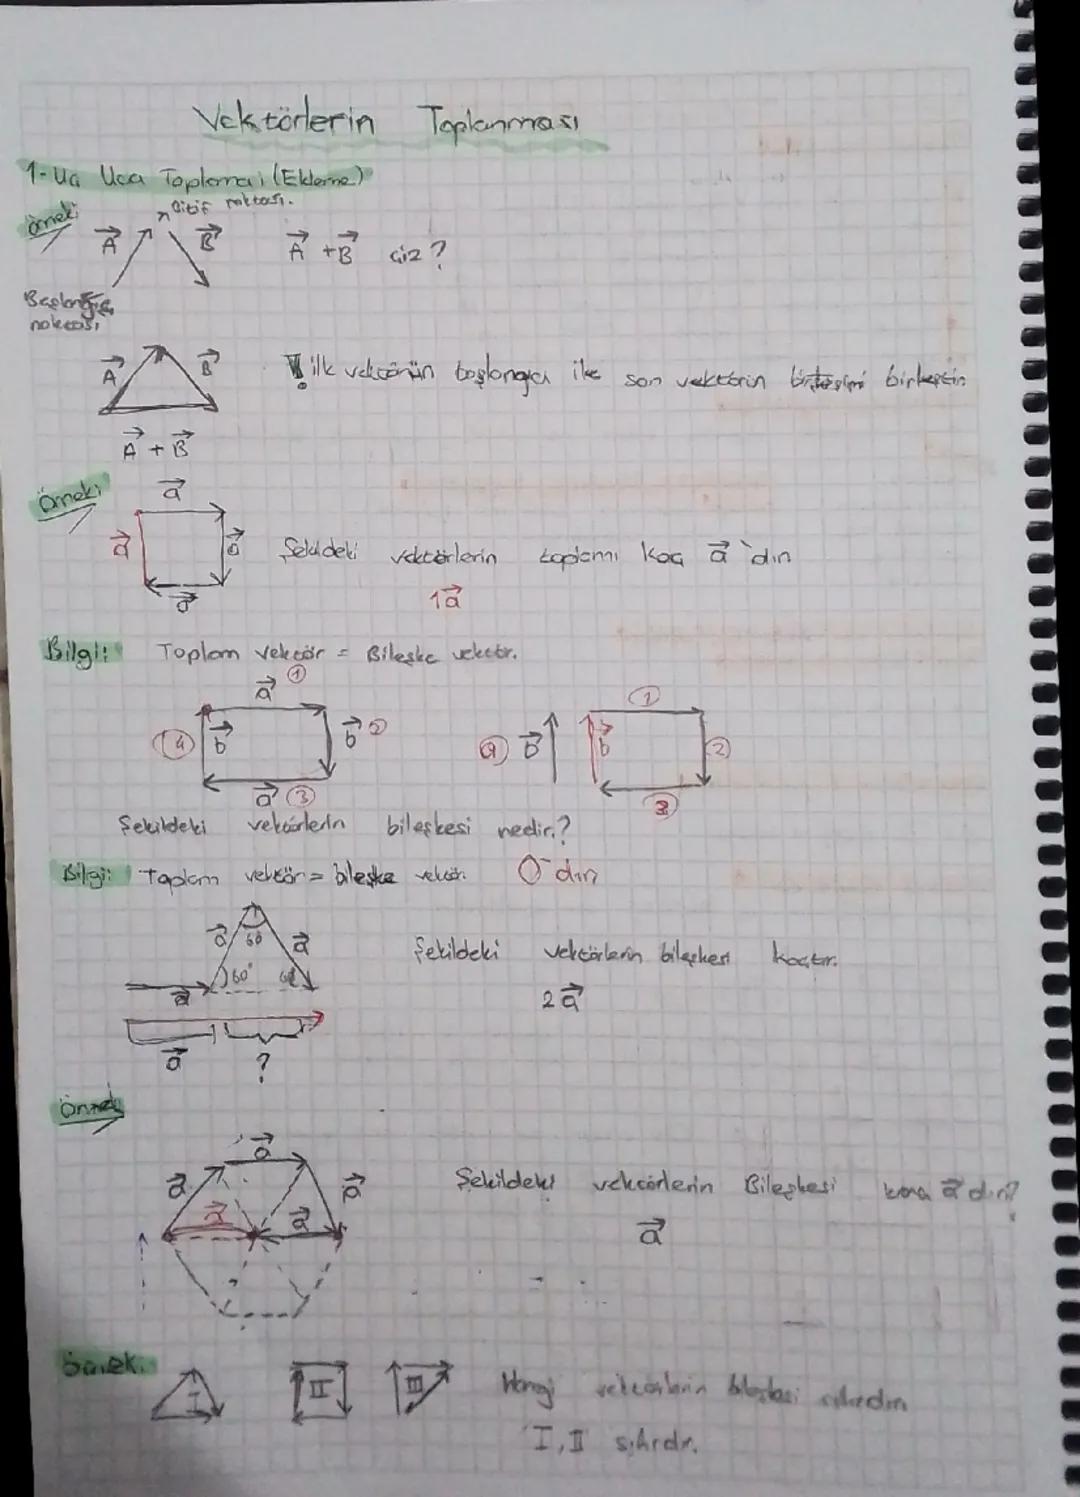 Vektörlerin Toplanması
1- Uç Uca Toplama (Ekleme)
örnek:
Bitiş noktası.
A B A + B çiz?
Başlangıç noktası
A B ! ilk vektörün başlangıcı ile son vektörün bitişini birleştir
A + B
Örnek:
a
a a Şekildeki vektörlerin toplamı kaç a 'dır
a 1a
Bilgi: Toplam vektör = Bileşke vektör.
a 1 1
4 b b 2 4 b b 2
a 3 3
Şekildeki vektörlerin bileşkesi nedir?
Bilgi: Toplam vektör = bileşke vektör. 0 dır
a 60 a Şekildeki vektörlerin bileşkesi kaçtır.
60° 60
a 2a
a ?
Örnek
a
a a Şekildeki vektörlerin Bileşkesi kaç a dır?
a a a
Örnek:
I II III Hangi vektörlerin bileşkesi sıfırdır
I, II sıfırdır.